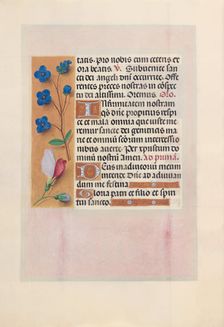 tatis. Pro nobis cum ceteris et
ora beatis. V. Subvenite san
cti dei angeli dni occurrite. Offe
rentes preces nostras in cospec
tu dei altissimi. Oremus. Oro.
Infirmitatem nostram
qs dne propitius respi
ce et mala omnia que iuste me
remur sancte dei genitricis ma
rie et omnium sanctorum inter
cessionibus averte. Per xpistum do
minum nostrum Amen. Ad primam.
Deus in adiutorium meum
intende. Dne ad adiuvan
dum me festina
Gloria patri et filio et spiri
tui sancto.